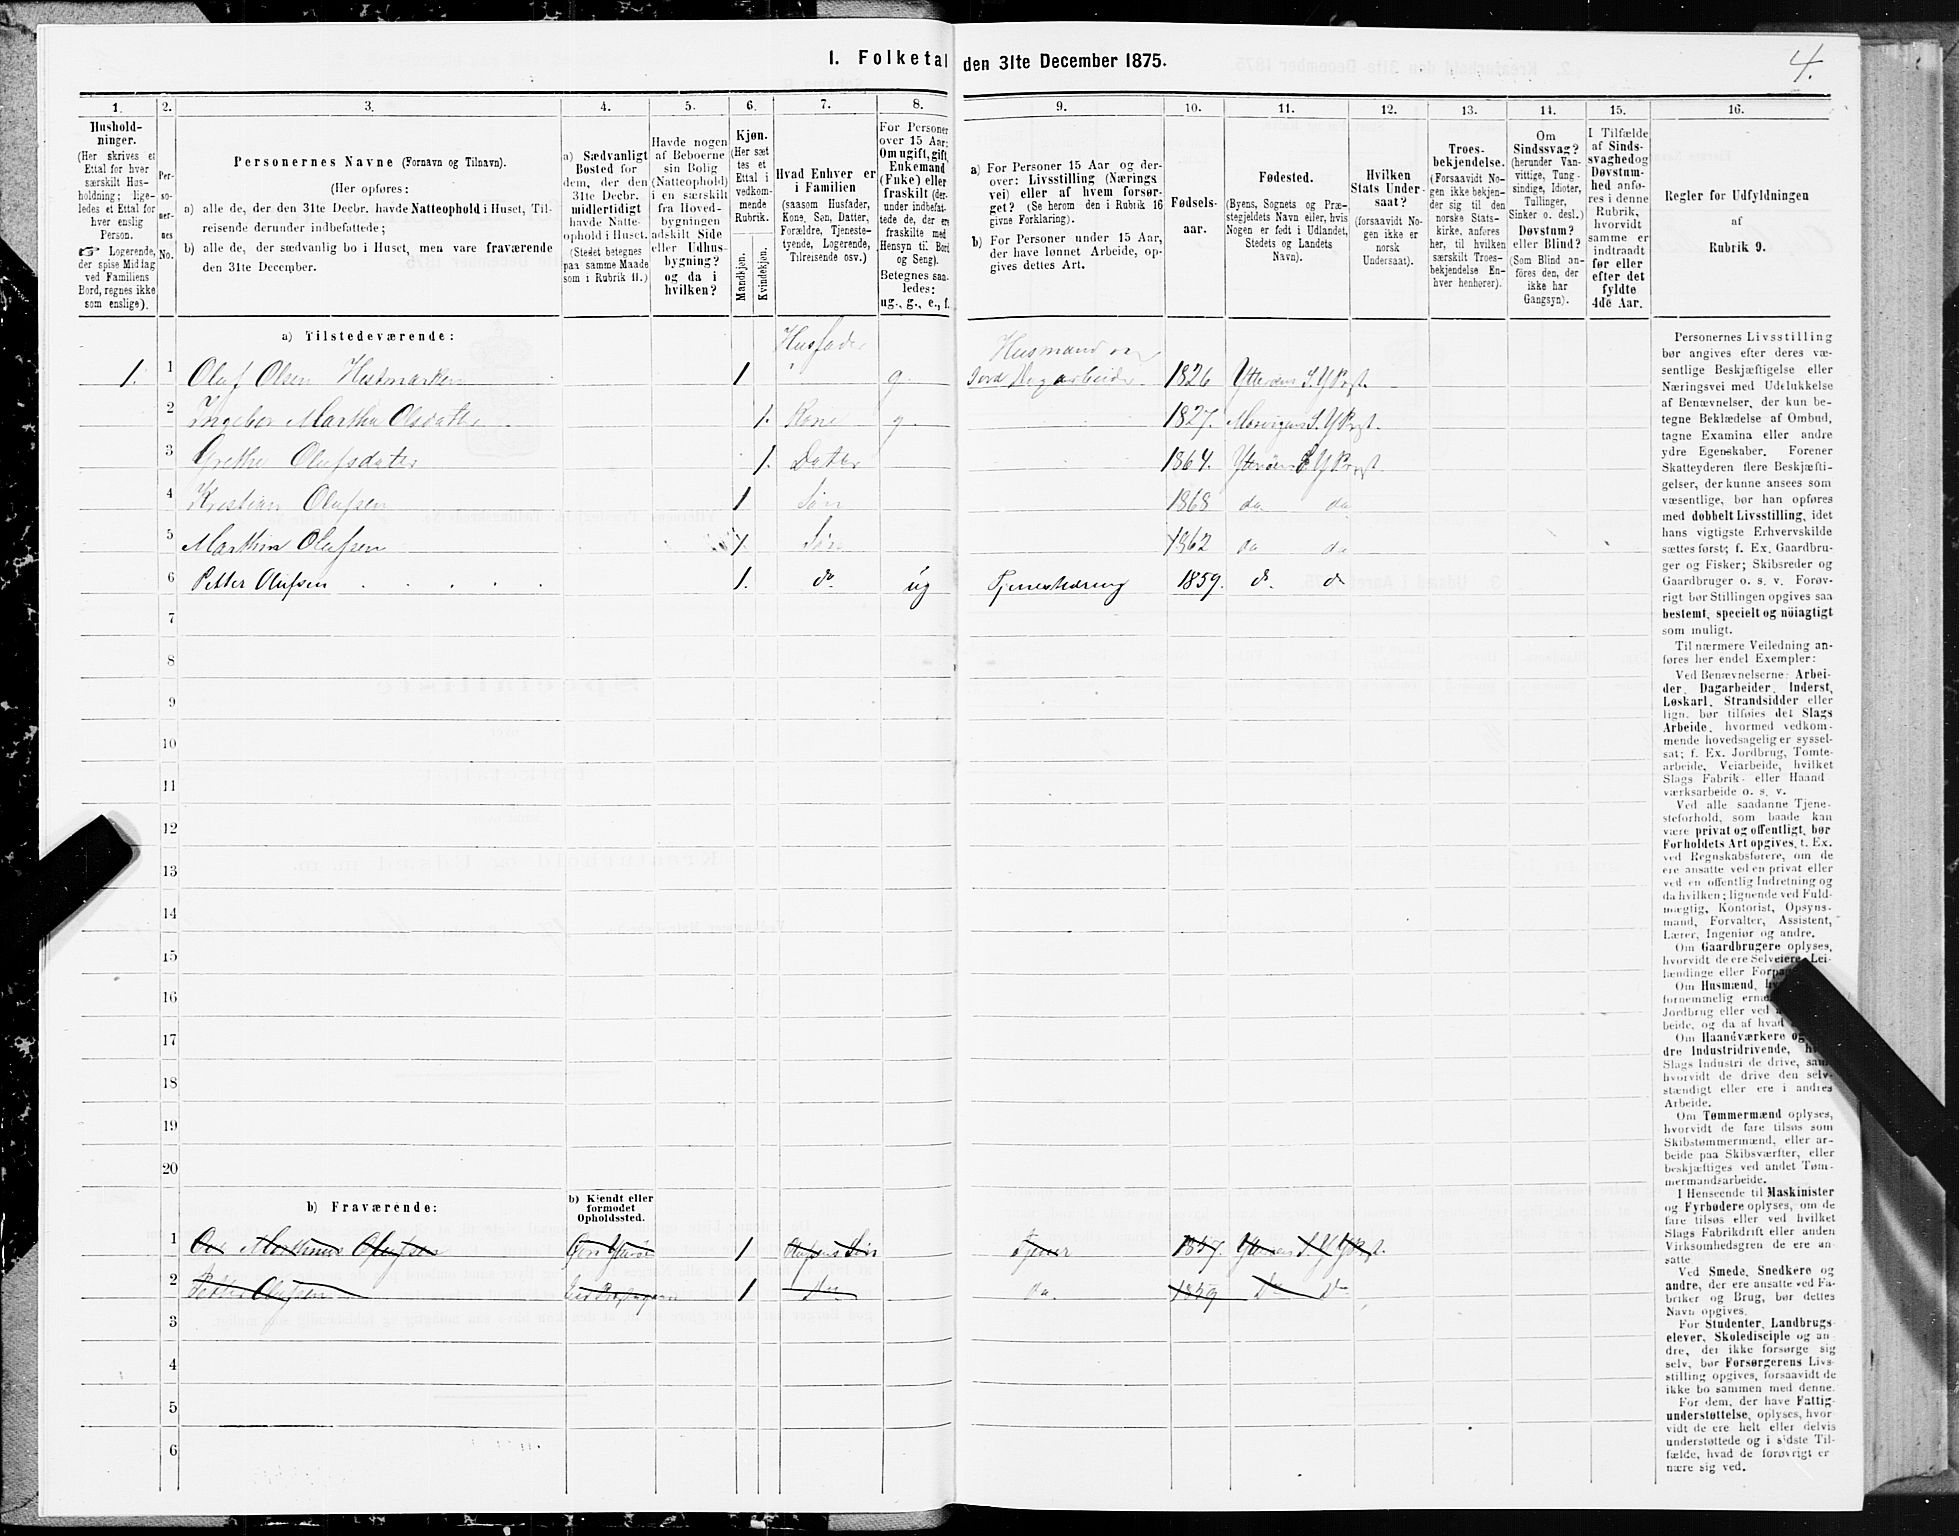 I. Folketal den 31te December 1875.
4.
1.
Hushold-
ninger.
(Her skrives et
Ettal for hver
særskilt Hus-
holdning; lige-
ledes et Ettal for
hver enslig
Person.
☞ Logerende,
der spise Middag
ved Familiens
Bord, regnes ikke
som enslige).
2.
Per-
so-
ner-
nes
No.
3.
Personernes Navne (Fornavn og Tilnavn).
(Her opføres:
a) alle de, der den 31te Decbr. havde Natteophold i Huset, Til-
reisende derunder indbefattede;
b) alle de, der sædvanlig bo i Huset, men vare fraværende
den 31te December.
4.
a) Sædvanligt
Bosted for
dem, der den
31te Decbr.
midlertidigt
havde Natte-
ophold i Huset.
(Stedet betegnes
paa samme Maade
som i Rubrik 11.)
5.
Havde nogen
af Beboerne
sin Bolig
(Natteophold)
i en særskilt
fra Hoved-
bygningen
adskilt Side
eller Udhus-
bygning?
og da i
hvilken?
6.
Kjøn.
(Her sæt
tes et
Ettal i
vedkom-
mende
Rubrik.
Mandkjøn.
Kvindekjøn.
7.
Hvad Enhver er
i Familien
(saasom Husfader,
Kone, Søn, Datter,
Forældre, Tjeneste-
tyende, Logerende,
Tilreisende osv.)
8.
For Personer
over 15 Aar:
Om ugift, gift,
Enkemand
(Enke) eller
fraskilt (der-
under indbefat-
tede de, der ere
fraskilte med
Hensyn til Bord
og Seng).
Betegnes saa-
ledes:
ug., g., e., f.
9.
a) For Personer 15 Aar og der-
over: Livsstilling (Nærings
vei) eller af hvem forsør-
get? (Se herom den i Rubrik 16
givne Forklaring).
b) For Personer under 15 Aar,
der have lønnet Arbeide, op-
gives dettes Art.
10.
Fødsels-
aar.
11.
Fødested.
(Byens, Sognets og Præ-
stegjeldets Navn eller, hvis
Nogen er født i Udlandet,
Stedets og Landets
Navn).
12.
Hvilken
Stats Under-
saat?
(forsaavidt No-
gen ikke er
norsk
Undersaat).
13.
Troes-
bekjendelse.
(Forsaavidt No-
gen ikke bekjen-
der sig til den
norske Stats-
kirke, anføres
her, til hvilken
særskilt Troes-
bekjendelse En-
hver henhører).
14.
Om
Sindssvag?
(herunder Van-
vittige, Tung-
sindige, Idioter,
Tullinger,
Sinker o. desl.)
Døvstum?
eller Blind?
(Som Blind an-
føres den, der
ikke har
Gangsyn).
15.
I Tilfælde
af Sinds-
svaghed og
Døvstum-
hed anfø-
res i denne
Rubrik,
hvorvidt
samme er
indtraadt
før eller
efter det
fyldte
4de Aar.
16.
Regler for Udfyldningen
af
Rubrik 9.
a) Tilstedeværende:
1. 1 Oluf Olsen Hestmarken 1 Husfader g. Husmand Jord 1826 Ytterøens S. Y Prgt.
2 Ingebor Martha Olsdatter 1. Kone g. 1827. Mosvigens S. Y Prgt.
3 Grethe Olufsdater 1. Dater 1864. Ytterøens S Y Prgt
4 Kristian Olufsen 1 Søn 1868 do do
5 Marthin Olufsen 1 Søn 1862 do do
6 Petter Olufsen 1. do ug Tjenestedreng 1859. do do
7
8
9
10
11
12
13
14
15
16
17
18
19
20
b) Fraværende:
b) Kjendt eller
formodet
Opholdssted.
1 Marthinus Olufsen 1 Søn Tjener 1857. Ytterøens S. Y Prgt.
2 Petter Olufsen 1 Do. 1859 Do Do
3
4
5
6
Personernes Livsstilling
bør angives efter deres væ-
sentlige Beskjæftigelse eller
Næringsvei med Udelukkelse
af Benævnelser, der kun be-
tegne Beklædelse af Ombud,
tagne Examina eller andre
ydre Egenskaber. Forener
Skatteyderen flere Beskjæfti-
gelser, der kunne ansees som
væsentlige, bør han opføres
med dobbelt Livsstilling, idet
hans vigtigste Erhvervskilde
sættes først; f. Ex. Gaardbru-
ger og Fisker; Skibsreder og
Gaardbruger o. s. v. Forøv-
rigt bør Stillingen opgives saa
bestemt, specielt og nöiagtigt
som muligt.
Til nærmere Veiledning an-
føres her endel Exempler:
Ved Benævnelserne: Arbei-
der, Dagarbeider, Inderst,
Løskarl, Strandsidder eller
lign. bør tilføies det Slags
Arbeide, hvormed vedkom-
mende hovedsagelig er syssel-
sat; f. Ex. Jordbrug, Tomte-
arbeide, Veiarbeide, hvilket
Slags Fabrik- eller Haand-
værksarbeide o. s. v.
Ved alle saadanne Tjene-
steforhold, som baade kan
være privat og offentligt, bør
Forholdets Art opgives, f. Ex.
ved Regnskabsførere, om de
ere ansatte ved en privat eller
ved en offentlig Indretning og
da hvilken; lignende ved Fuld-
mægtig, Kontorist, Opsyns-
mand, Forvalter, Assistent,
Lærer, Ingeniør og andre.
Om Gaardbrugere oplyses,
hvorvidt de ere Selveiere, Lei-
lændinge eller
Om Husmænd,
fornemmelig
Jordbrug eller ved
beide, og da af hvad
Om Haandværkere og
dre Industridrivende,
Slags Industri de drive, samt
hvorvidt de drive den selv-
stændigt eller ere i andres
Arbeide.
Om Tømmermænd oplyses,
hvorvidt de fare tilsøs som
Skibstømmermænd, eller ar-
beide paa Skibsværfter, eller
beskjæftiges ved andet Tøm-
mermandsarbeide.
I Henseende til Maskinister
og Fyrbødere oplyses, om de
fare tilsøs eller ved hvilket
Slags Fabrikdrift eller anden
Virksomhedsgren de ere an-
satte.
Ved Smede, Snedkere og
andre, der ere ansatte ved Fa-
briker og Brug, bør dettes
Navn opgives.
For Studenter, Landbrugs-
elever, Skoledisciple og an-
dre, der ikke forsørge sig
selv, bør Forsørgerens Livs-
stilling opgives, forsaavidt de
ikke bo sammen med denne.
For dem, der have Fattig-
understøttelse, oplyses, hvor-
vidt de ere helt eller delvis
understøttede og i sidste Til-
fælde, hvad de forøvrigt er-
nære sig ved.